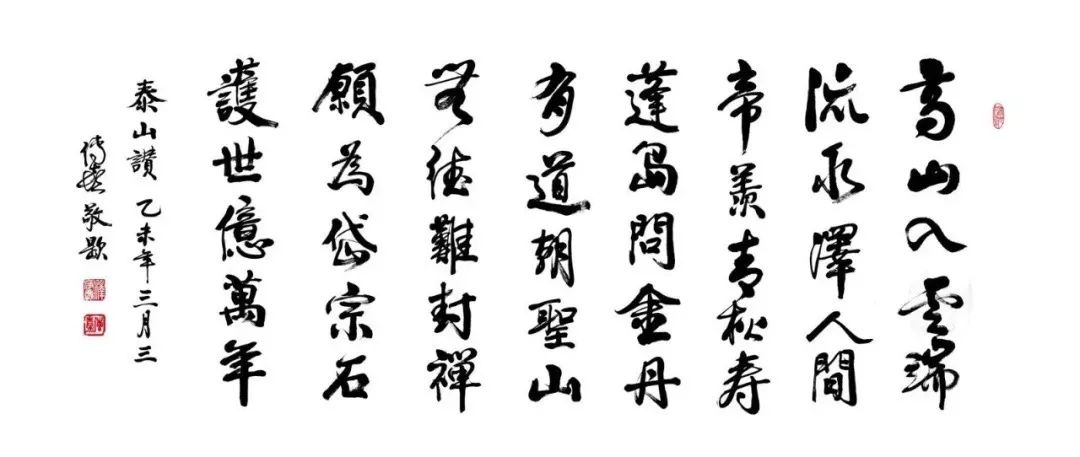 高山入雲端
流水澤人間
帝羨春秋寿
蓬島問金丹
有道朝聖山
無德難封禪
願為岱宗石
護世億萬年
泰山讃 乙未年三月三
敬題